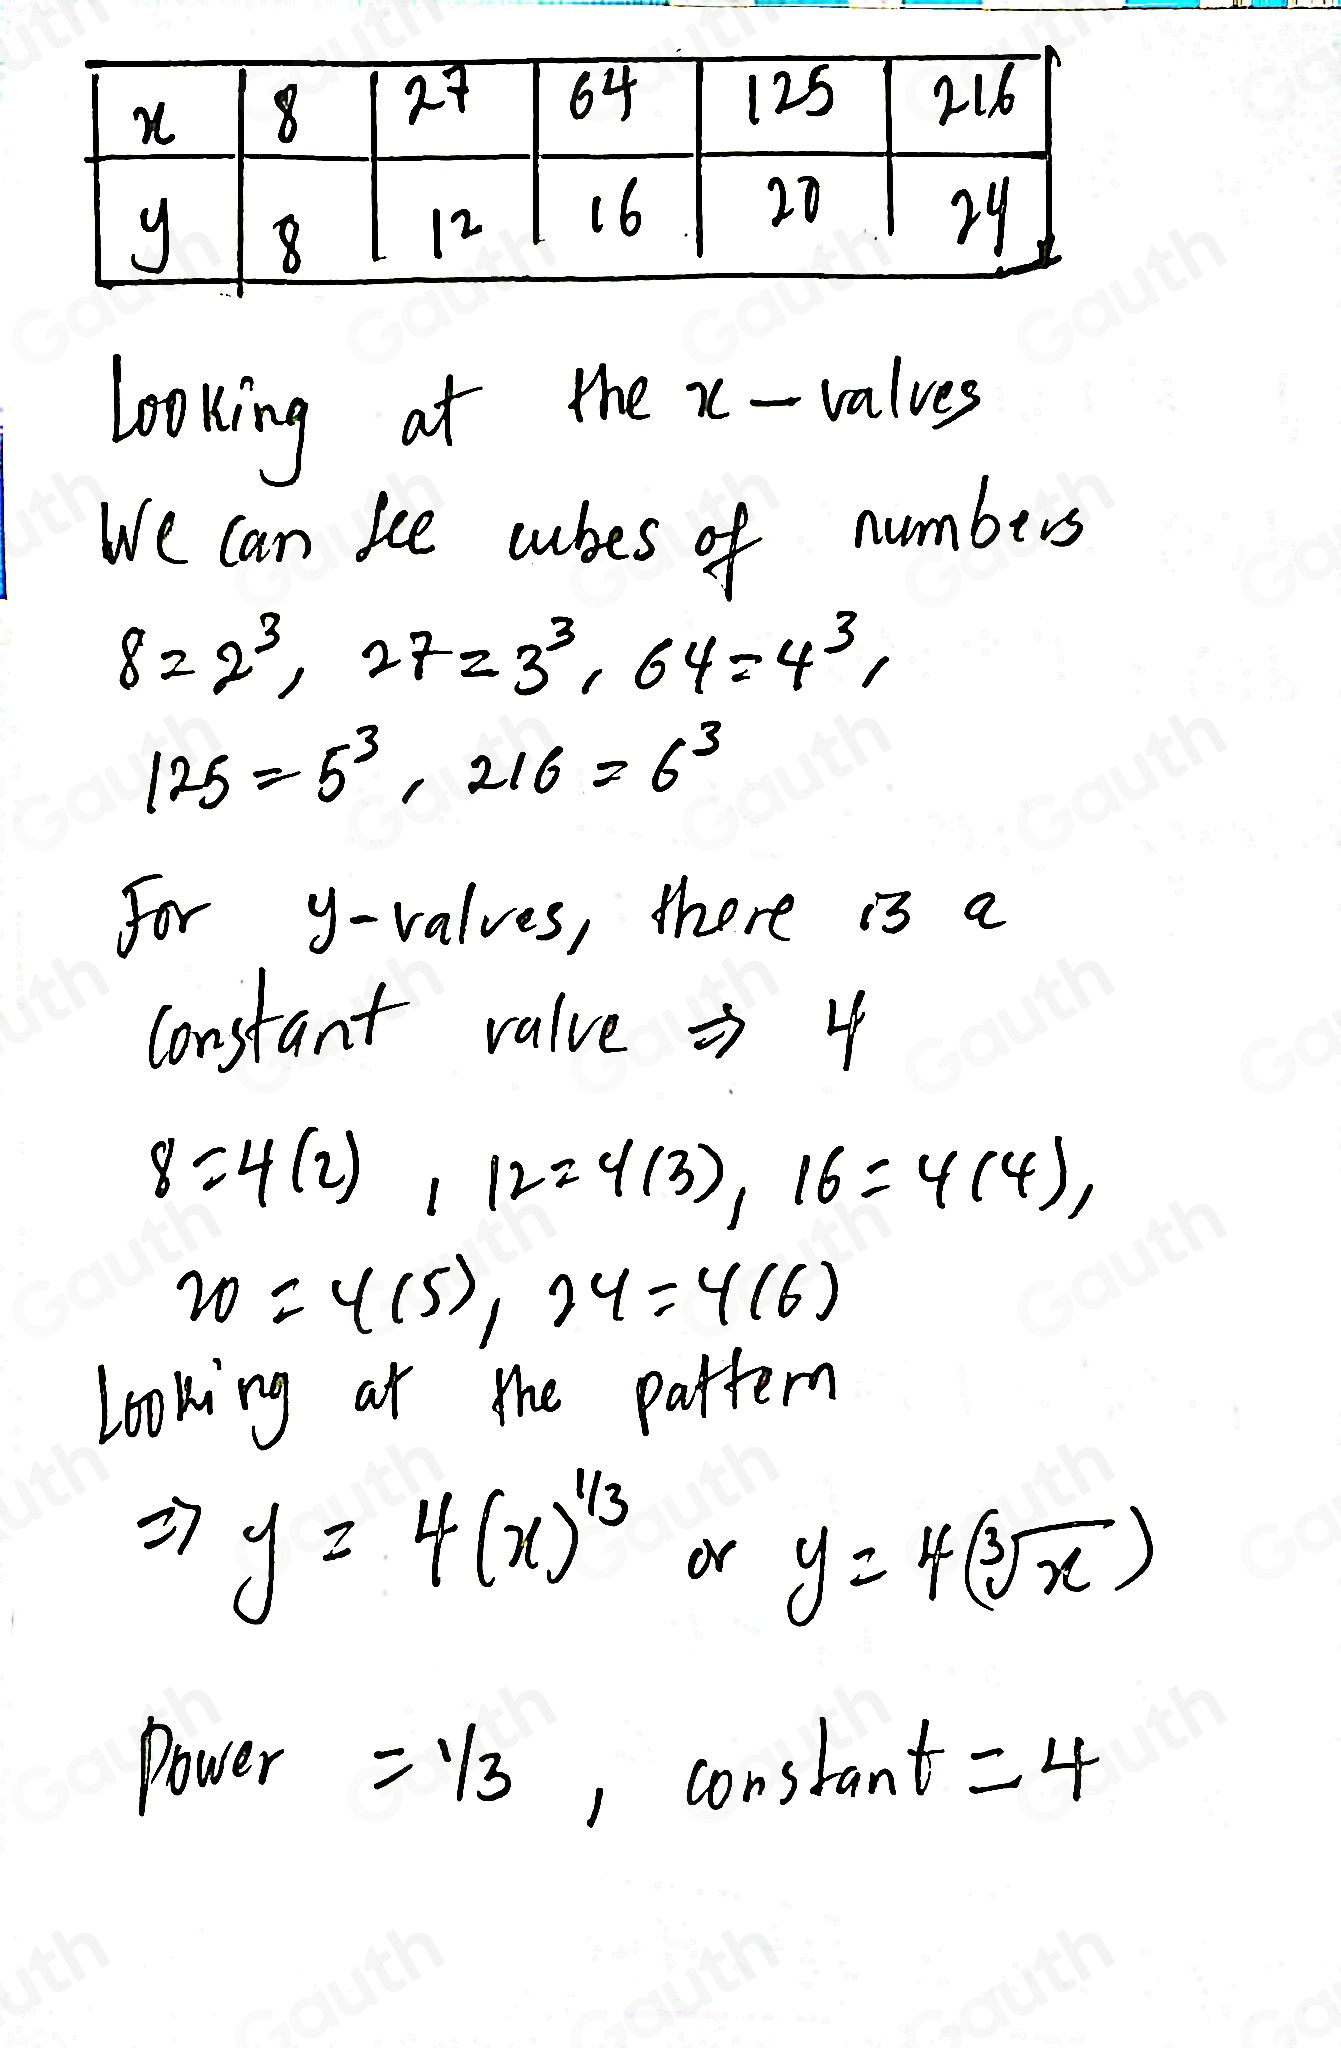 x 8 27 64 125 216
y 8 12 16 20 24
Looking at the x-values
We can see cubes of numbers
8=2³, 27=3³, 64=4³,
125=5³, 216=6³
For y-values, there is a
constant value ⇒ 4
8=4(2), 12=4(3), 16=4(4),
20=4(5), 24=4(6)
Looking at the pattern
⇒ y = 4(x)^1/3 or y=4(∛x)
Power = 1/3, constant = 4
Gauth